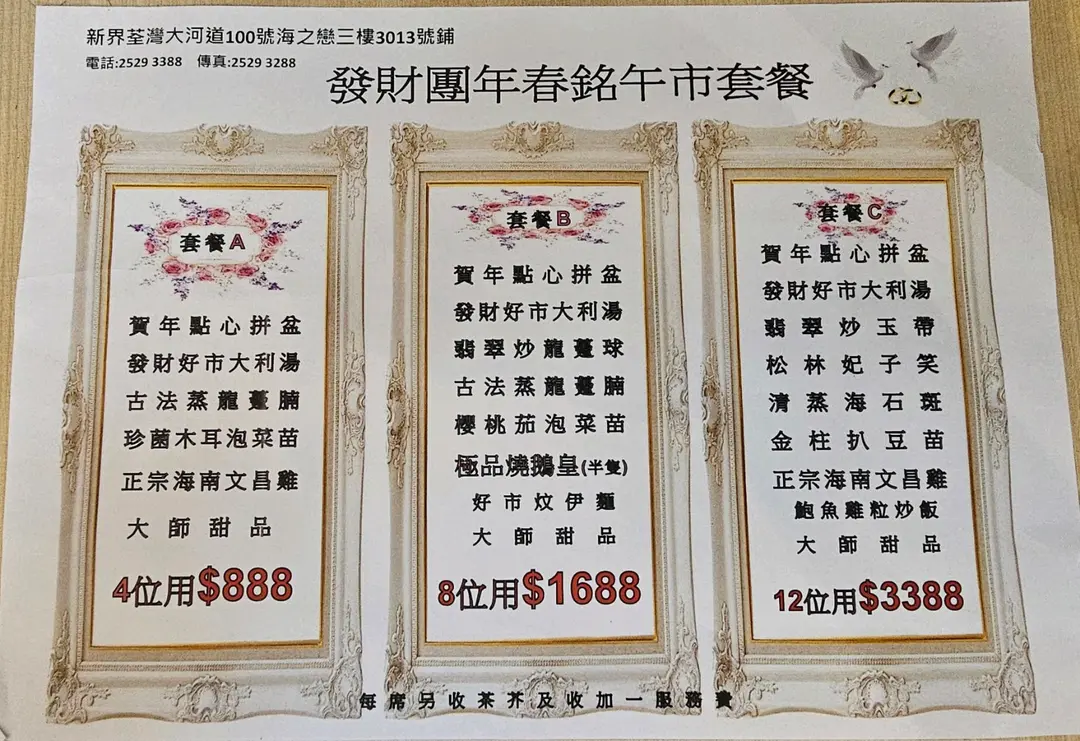 新界荃灣大河道100號海之戀三樓3013號鋪
電話:2529 3388 傳真:2529 3288
發財團年春銘午市套餐
套餐A
賀年點心拼盆
發財好市大利湯
古法蒸龍躉腩
珍菌木耳泡菜苗
正宗海南文昌雞
大師甜品
4位用$888
套餐B
賀年點心拼盆
發財好市大利湯
翡翠炒龍躉球
古法蒸龍躉腩
櫻桃茄泡菜苗
極品燒鵝皇(半隻)
好市炆伊麵
大師甜品
8位用$1688
套餐C
賀年點心拼盆
發財好市大利湯
翡翠炒玉帶
松林妃子笑
清蒸海石斑
金柱扒豆苗
正宗海南文昌雞
鮑魚雞粒炒飯
大師甜品
12位用$3388
每席另收茶芥及收加一服務費